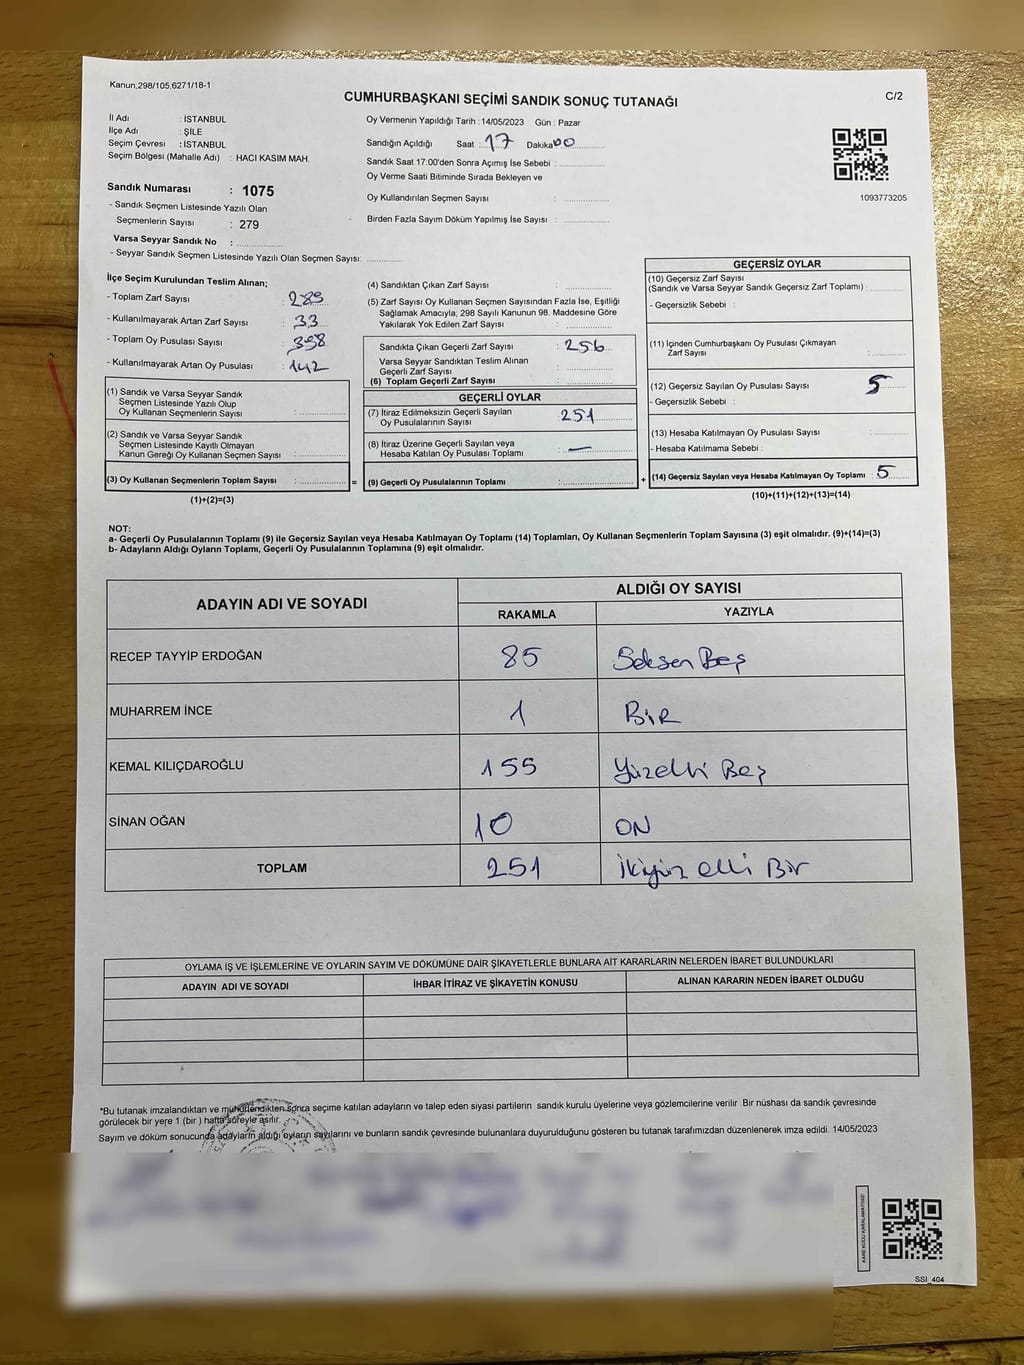 Kanun;298/105,6271/18-1
CUMHURBAŞKANI SEÇİMİ SANDIK SONUÇ TUTANAĞI
C/2
İl Adı : İSTANBUL
İlçe Adı : ŞİLE
Seçim Çevresi : İSTANBUL
Seçim Bölgesi (Mahalle Adı) : HACI KASIM MAH.
Sandık Numarası : 1075
- Sandık Seçmen Listesinde Yazılı Olan
Seçmenlerin Sayısı : 279
Varsa Seyyar Sandık No :
- Seyyar Sandık Seçmen Listesinde Yazılı Olan Seçmen Sayısı:
Oy Vermenin Yapıldığı Tarih : 14/05/2023 Gün : Pazar
Sandığın Açıldığı Saat : 17 Dakika 00
Sandık Saat 17:00'den Sonra Açımış İse Sebebi :
Oy Verme Saati Bitiminde Sırada Bekleyen ve
Oy Kullandırılan Seçmen Sayısı :
Birden Fazla Sayım Döküm Yapılmış İse Sayısı :
1093773205
İlçe Seçim Kurulundan Teslim Alınan;
- Toplam Zarf Sayısı : 289
- Kullanılmayarak Artan Zarf Sayısı : 33
- Toplam Oy Pusulası Sayısı : 398
- Kullanılmayarak Artan Oy Pusulası : 142
(1) Sandık ve Varsa Seyyar Sandık
Seçmen Listesinde Yazılı Olup
Oy Kullanan Seçmenlerin Sayısı :
(2) Sandık ve Varsa Seyyar Sandık
Seçmen Listesinde Kayıtlı Olmayan
Kanun Gereği Oy Kullanan Seçmen Sayısı :
(3) Oy Kullanan Seçmenlerin Toplam Sayısı :
(1)+(2)=(3)
(4) Sandıktan Çıkan Zarf Sayısı :
(5) Zarf Sayısı Oy Kullanan Seçmen Sayısından Fazla İse, Eşitliği
Sağlamak Amacıyla; 298 Sayılı Kanunun 98. Maddesine Göre
Yakılarak Yok Edilen Zarf Sayısı :
Sandıkta Çıkan Geçerli Zarf Sayısı : 256
Varsa Seyyar Sandıktan Teslim Alınan
Geçerli Zarf Sayısı :
(6) Toplam Geçerli Zarf Sayısı :
GEÇERLİ OYLAR
(7) İtiraz Edilmeksizin Geçerli Sayılan
Oy Pusulalarının Sayısı : 251
(8) İtiraz Üzerine Geçerli Sayılan veya
Hesaba Katılan Oy Pusulası Toplamı : —
= (9) Geçerli Oy Pusulalarının Toplamı :
GEÇERSİZ OYLAR
(10) Geçersiz Zarf Sayısı
(Sandık ve Varsa Seyyar Sandık Geçersiz Zarf Toplamı) :
- Geçersizlik Sebebi :
(11) İçinden Cumhurbaşkanı Oy Pusulası Çıkmayan
Zarf Sayısı :
(12) Geçersiz Sayılan Oy Pusulası Sayısı : 5
- Geçersizlik Sebebi :
(13) Hesaba Katılmayan Oy Pusulası Sayısı :
- Hesaba Katılmama Sebebi :
+ (14) Geçersiz Sayılan veya Hesaba Katılmayan Oy Toplamı : 5
(10)+(11)+(12)+(13)=(14)
NOT:
a- Geçerli Oy Pusulalarının Toplamı (9) ile Geçersiz Sayılan veya Hesaba Katılmayan Oy Toplamı (14) Toplamları, Oy Kullanan Seçmenlerin Toplam Sayısına (3) eşit olmalıdır. (9)+(14)=(3)
b- Adayların Aldığı Oyların Toplamı, Geçerli Oy Pusulalarının Toplamına (9) eşit olmalıdır.
ADAYIN ADI VE SOYADI
ALDIĞI OY SAYISI
RAKAMLA YAZIYLA
RECEP TAYYİP ERDOĞAN 85 Seksen Beş
MUHARREM İNCE 1 BİR
KEMAL KILIÇDAROĞLU 155 Yüzelli Beş
SİNAN OĞAN 10 ON
TOPLAM 251 İkiyüz elli Bir
OYLAMA İŞ VE İŞLEMLERİNE VE OYLARIN SAYIM VE DÖKÜMÜNE DAİR ŞİKAYETLERLE BUNLARA AİT KARARLARIN NELERDEN İBARET BULUNDUKLARI
ADAYIN ADI VE SOYADI İHBAR İTİRAZ VE ŞİKAYETİN KONUSU ALINAN KARARIN NEDEN İBARET OLDUĞU
*Bu tutanak imzalandıktan ve mühürlendikten sonra seçime katılan adayların ve talep eden siyasi partilerin sandık kurulu üyelerine veya gözlemcilerine verilir .Bir nüshası da sandık çevresinde
görülecek bir yere 1 (bir ) hafta süreyle asılır.
Sayım ve döküm sonucunda adayların aldığı oyların sayılarını ve bunların sandık çevresinde bulunanlara duyurulduğunu gösteren bu tutanak tarafımızdan düzenlenerek imza edildi. 14/05/2023
KARE KODU KARALAMAYINIZ!
SSI_404